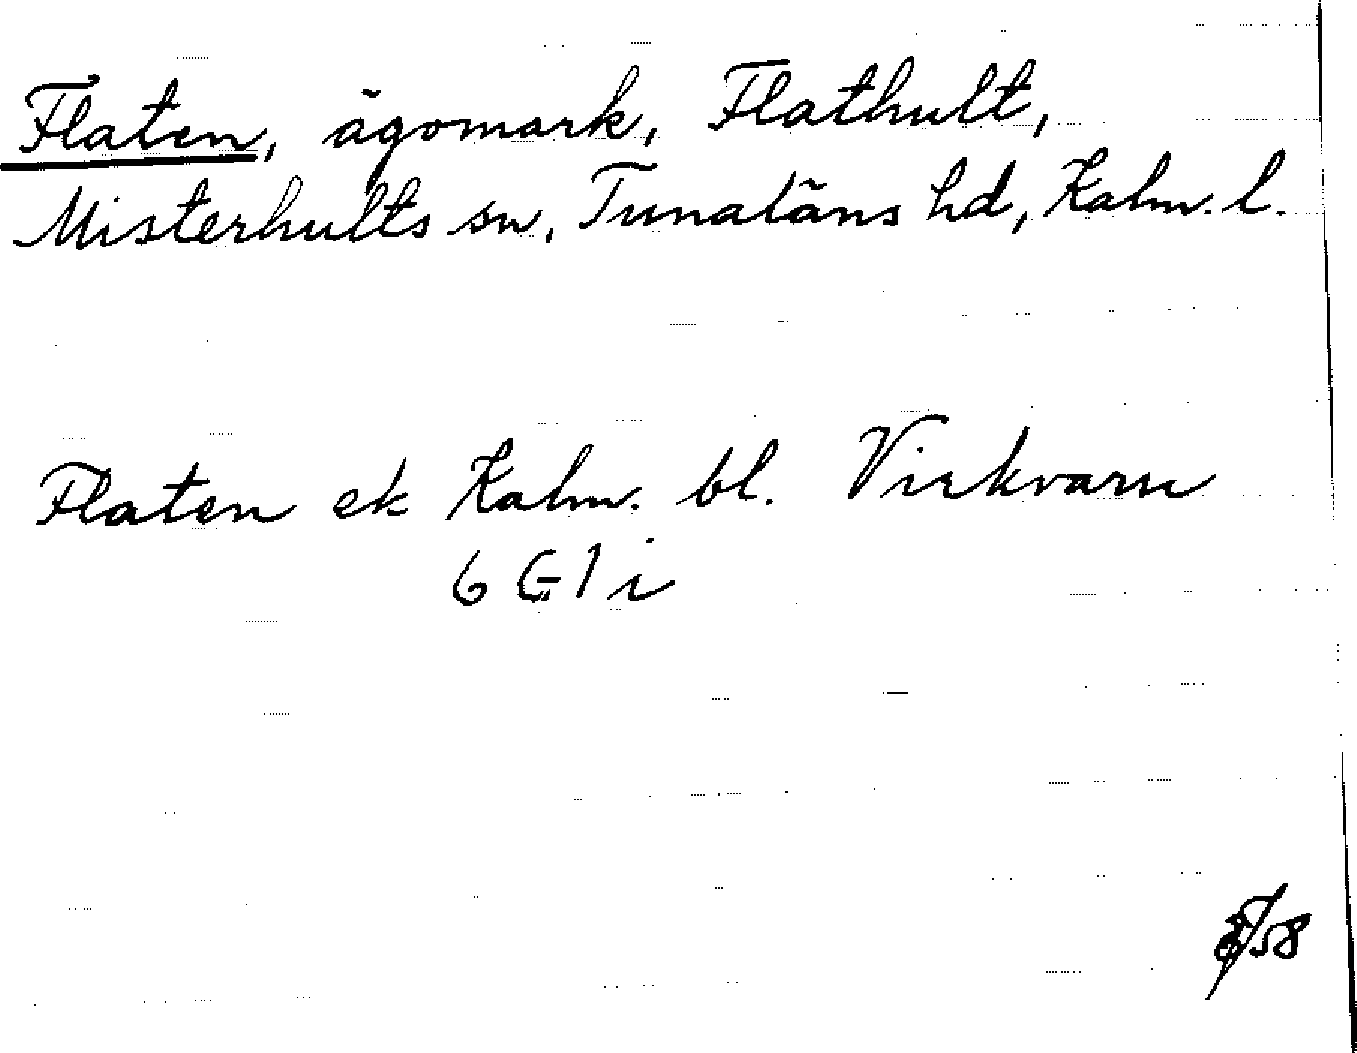 Flaten, ägomark, Flathult,
Misterhults sn, Tunaläns hd, Kalm. l.
Flaten ek Kalm. bl. Virkvarn
6 G 1 i